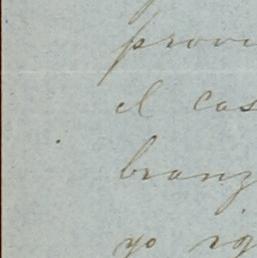 provi
el cas
branz
yo rig